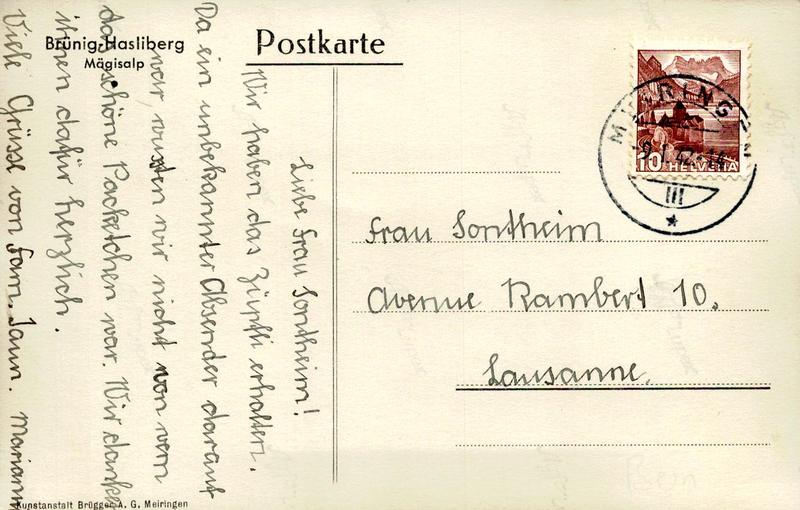 Brünig-Hasliberg
Mägisalp
Postkarte
MEIRINGEN
9.I.42-14
III
10 HELVETIA
Liebe Frau Sontheim!
Wir haben das Züpfli erhalten.
Da ein unbekannter Absender darauf
war, wusten wir nicht von wem
das schöne Packetchen war. Wir danken
ihnen dafür herzlich.
Viele Grüsse von Fam. Jaun. Mariann
Frau Sontheim
Avenue Rambert 10.
Lausanne.
Bern
Kunstanstalt Brügger A. G. Meiringen